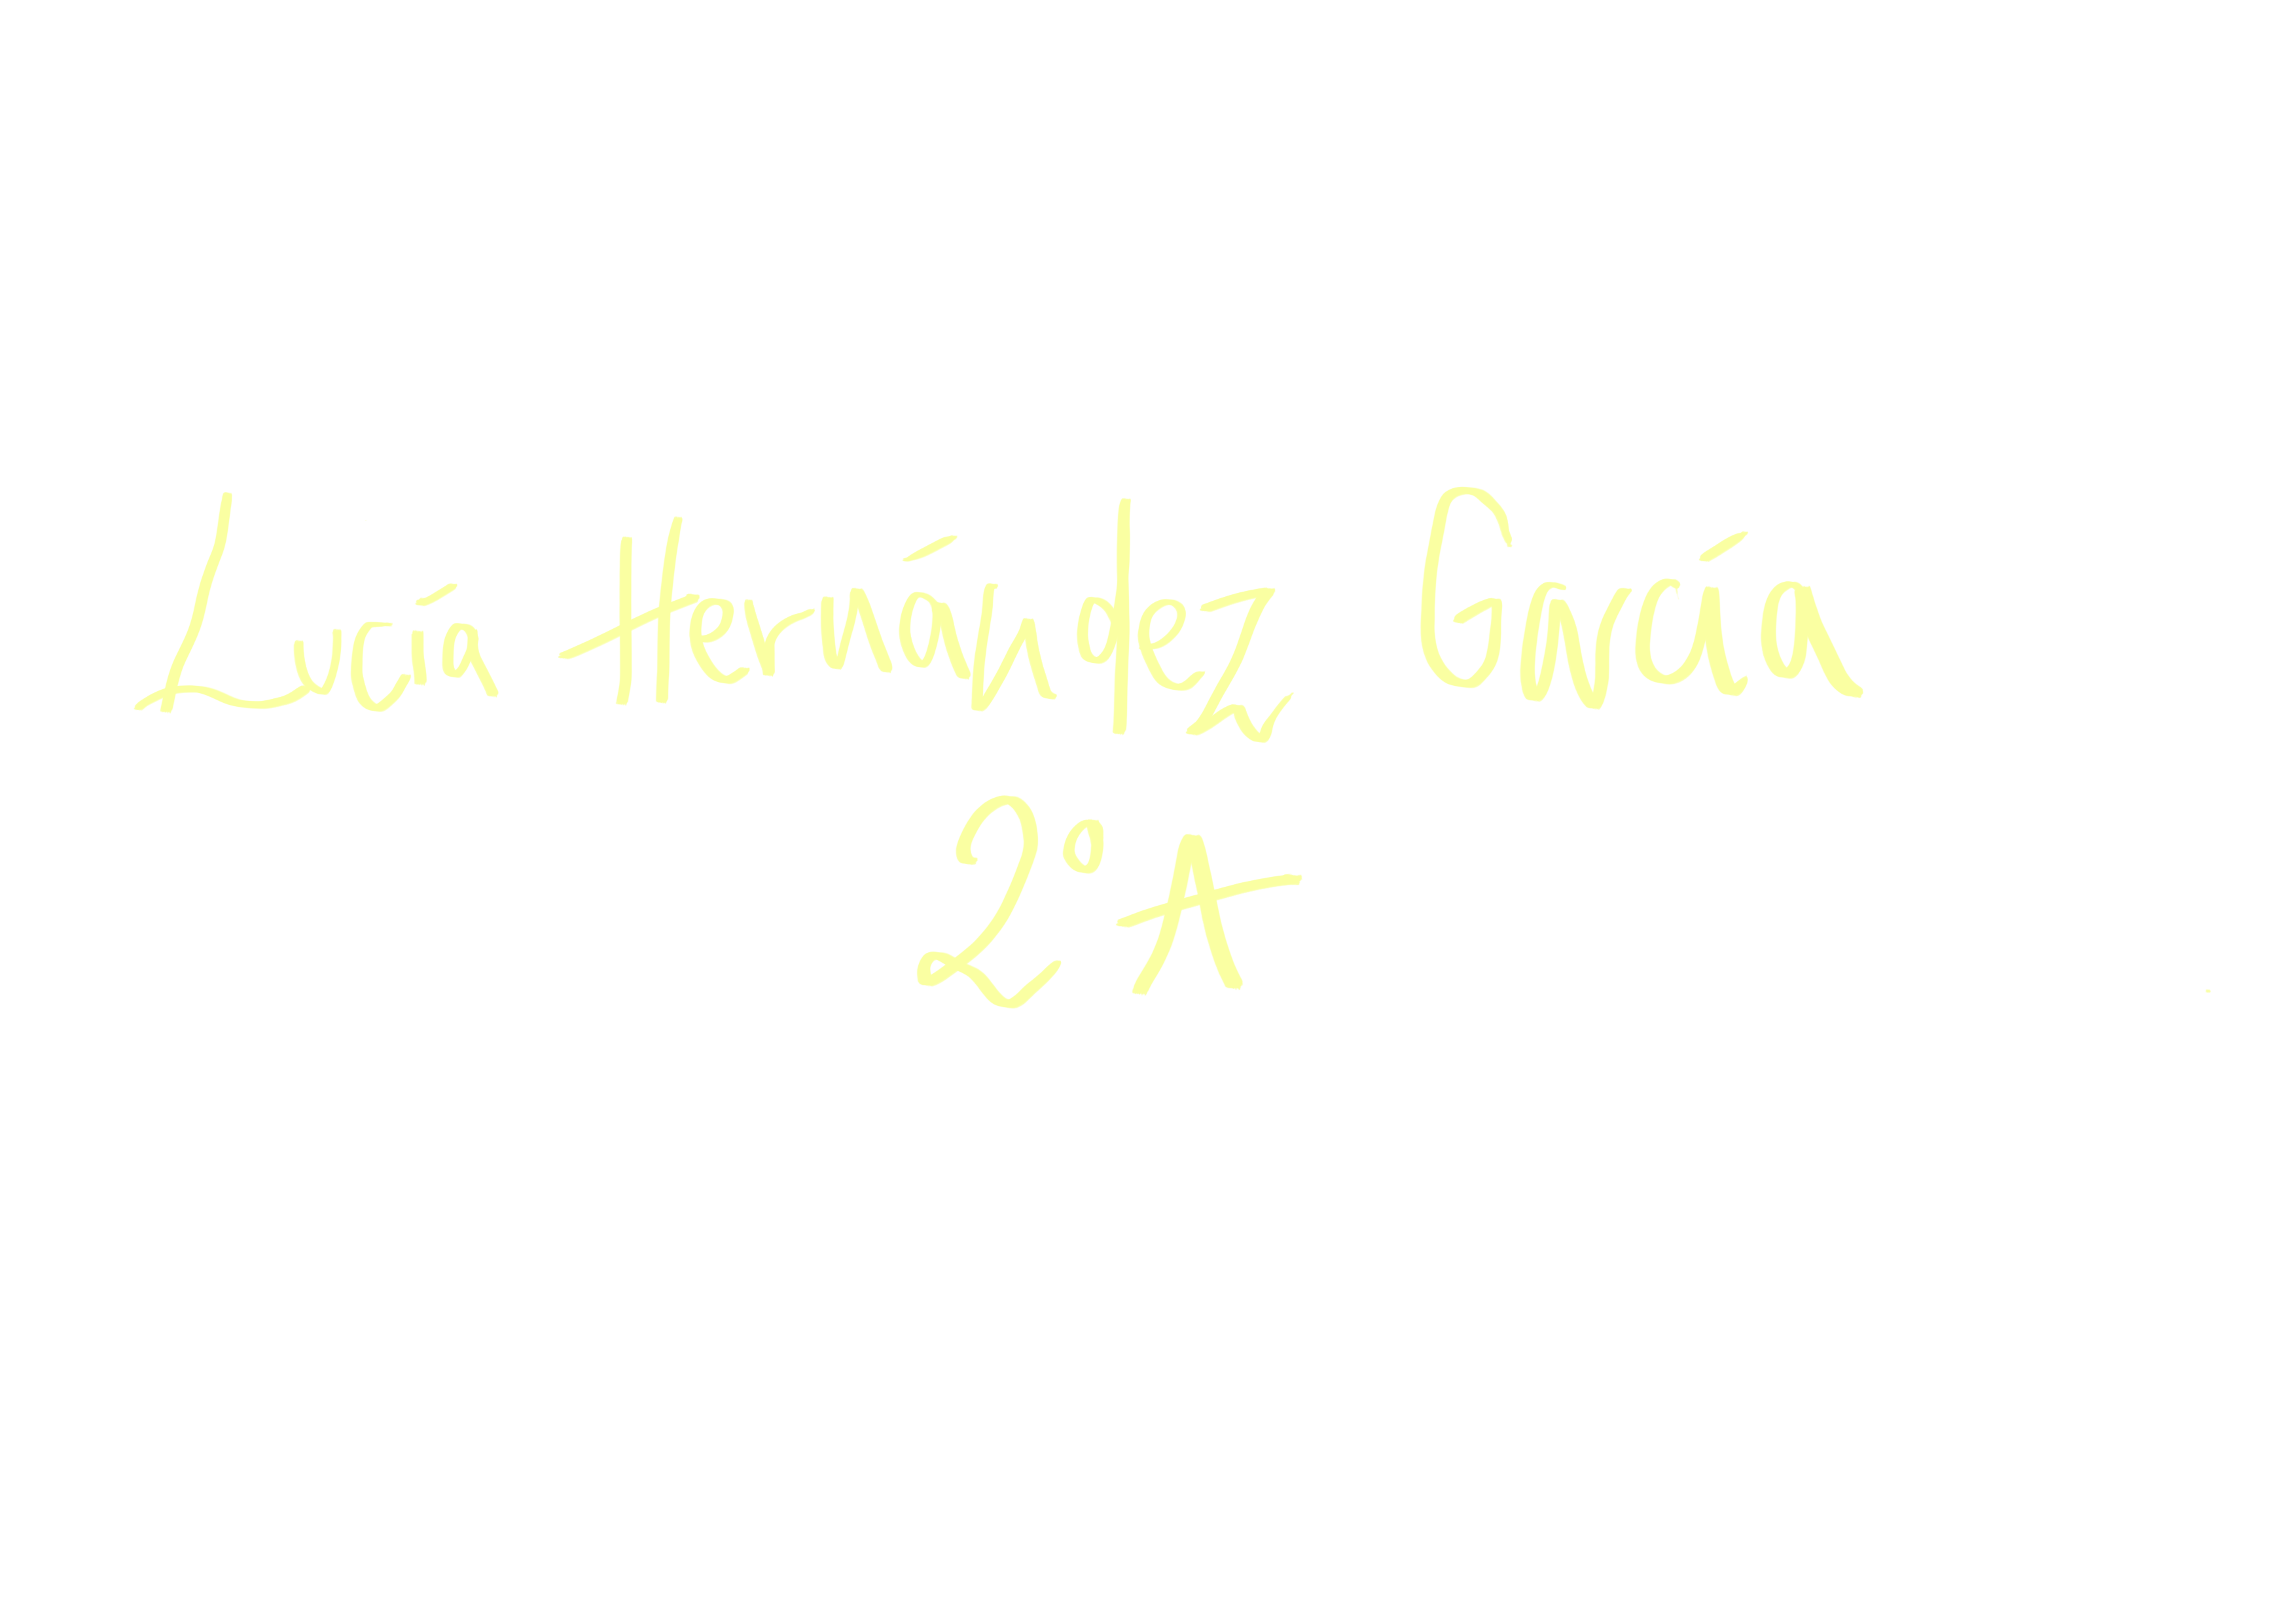 Lucía Hernández García
2º A